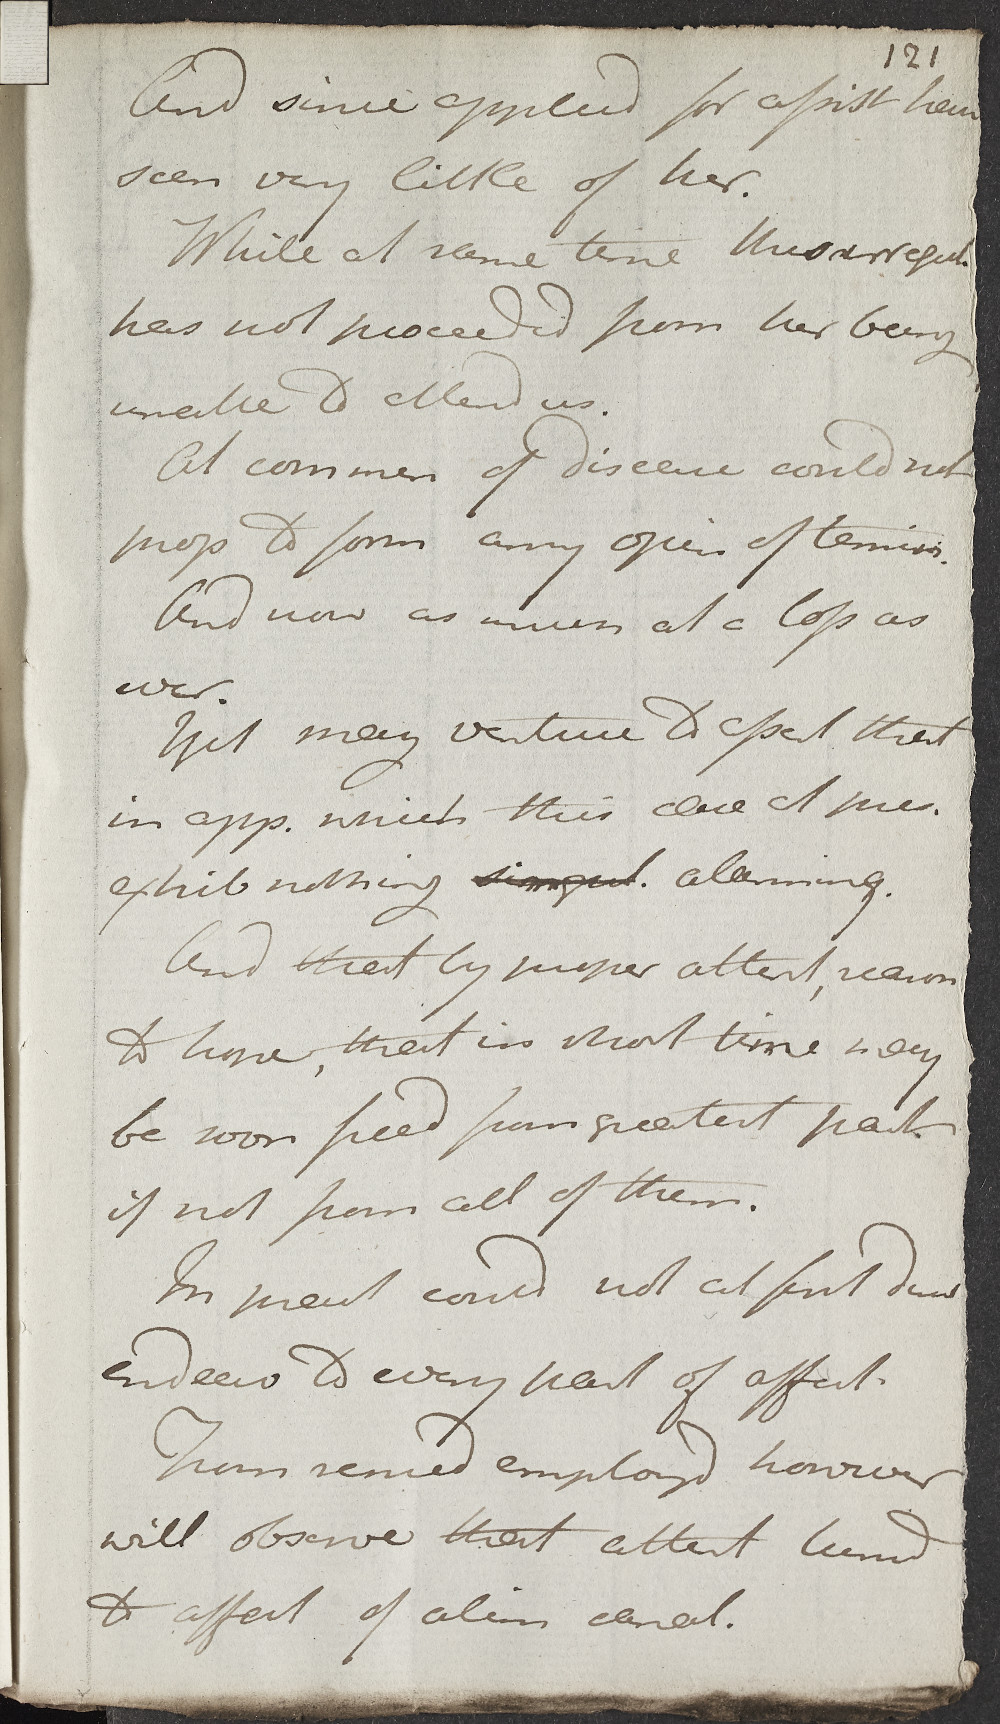 121
And since applied for assist have
seen very little of her.
While at same time this irregul.
has not proceeded from her being
unable to attend us.
At commen of disease could not
prop to form any opin of termin.
And now as much at a loss as
ever.
Yet may venture to assert that
in app. which this case at pres.
exhib nothing singul. alarming.
And that by proper attent, reason
to hope, that in short time may
be soon freed from greatest part
if not from all of them.
In pract could not at first direct
endeav to every part of affect.
From remed employd however
will observe that attent turnd
to affect of alim canal.